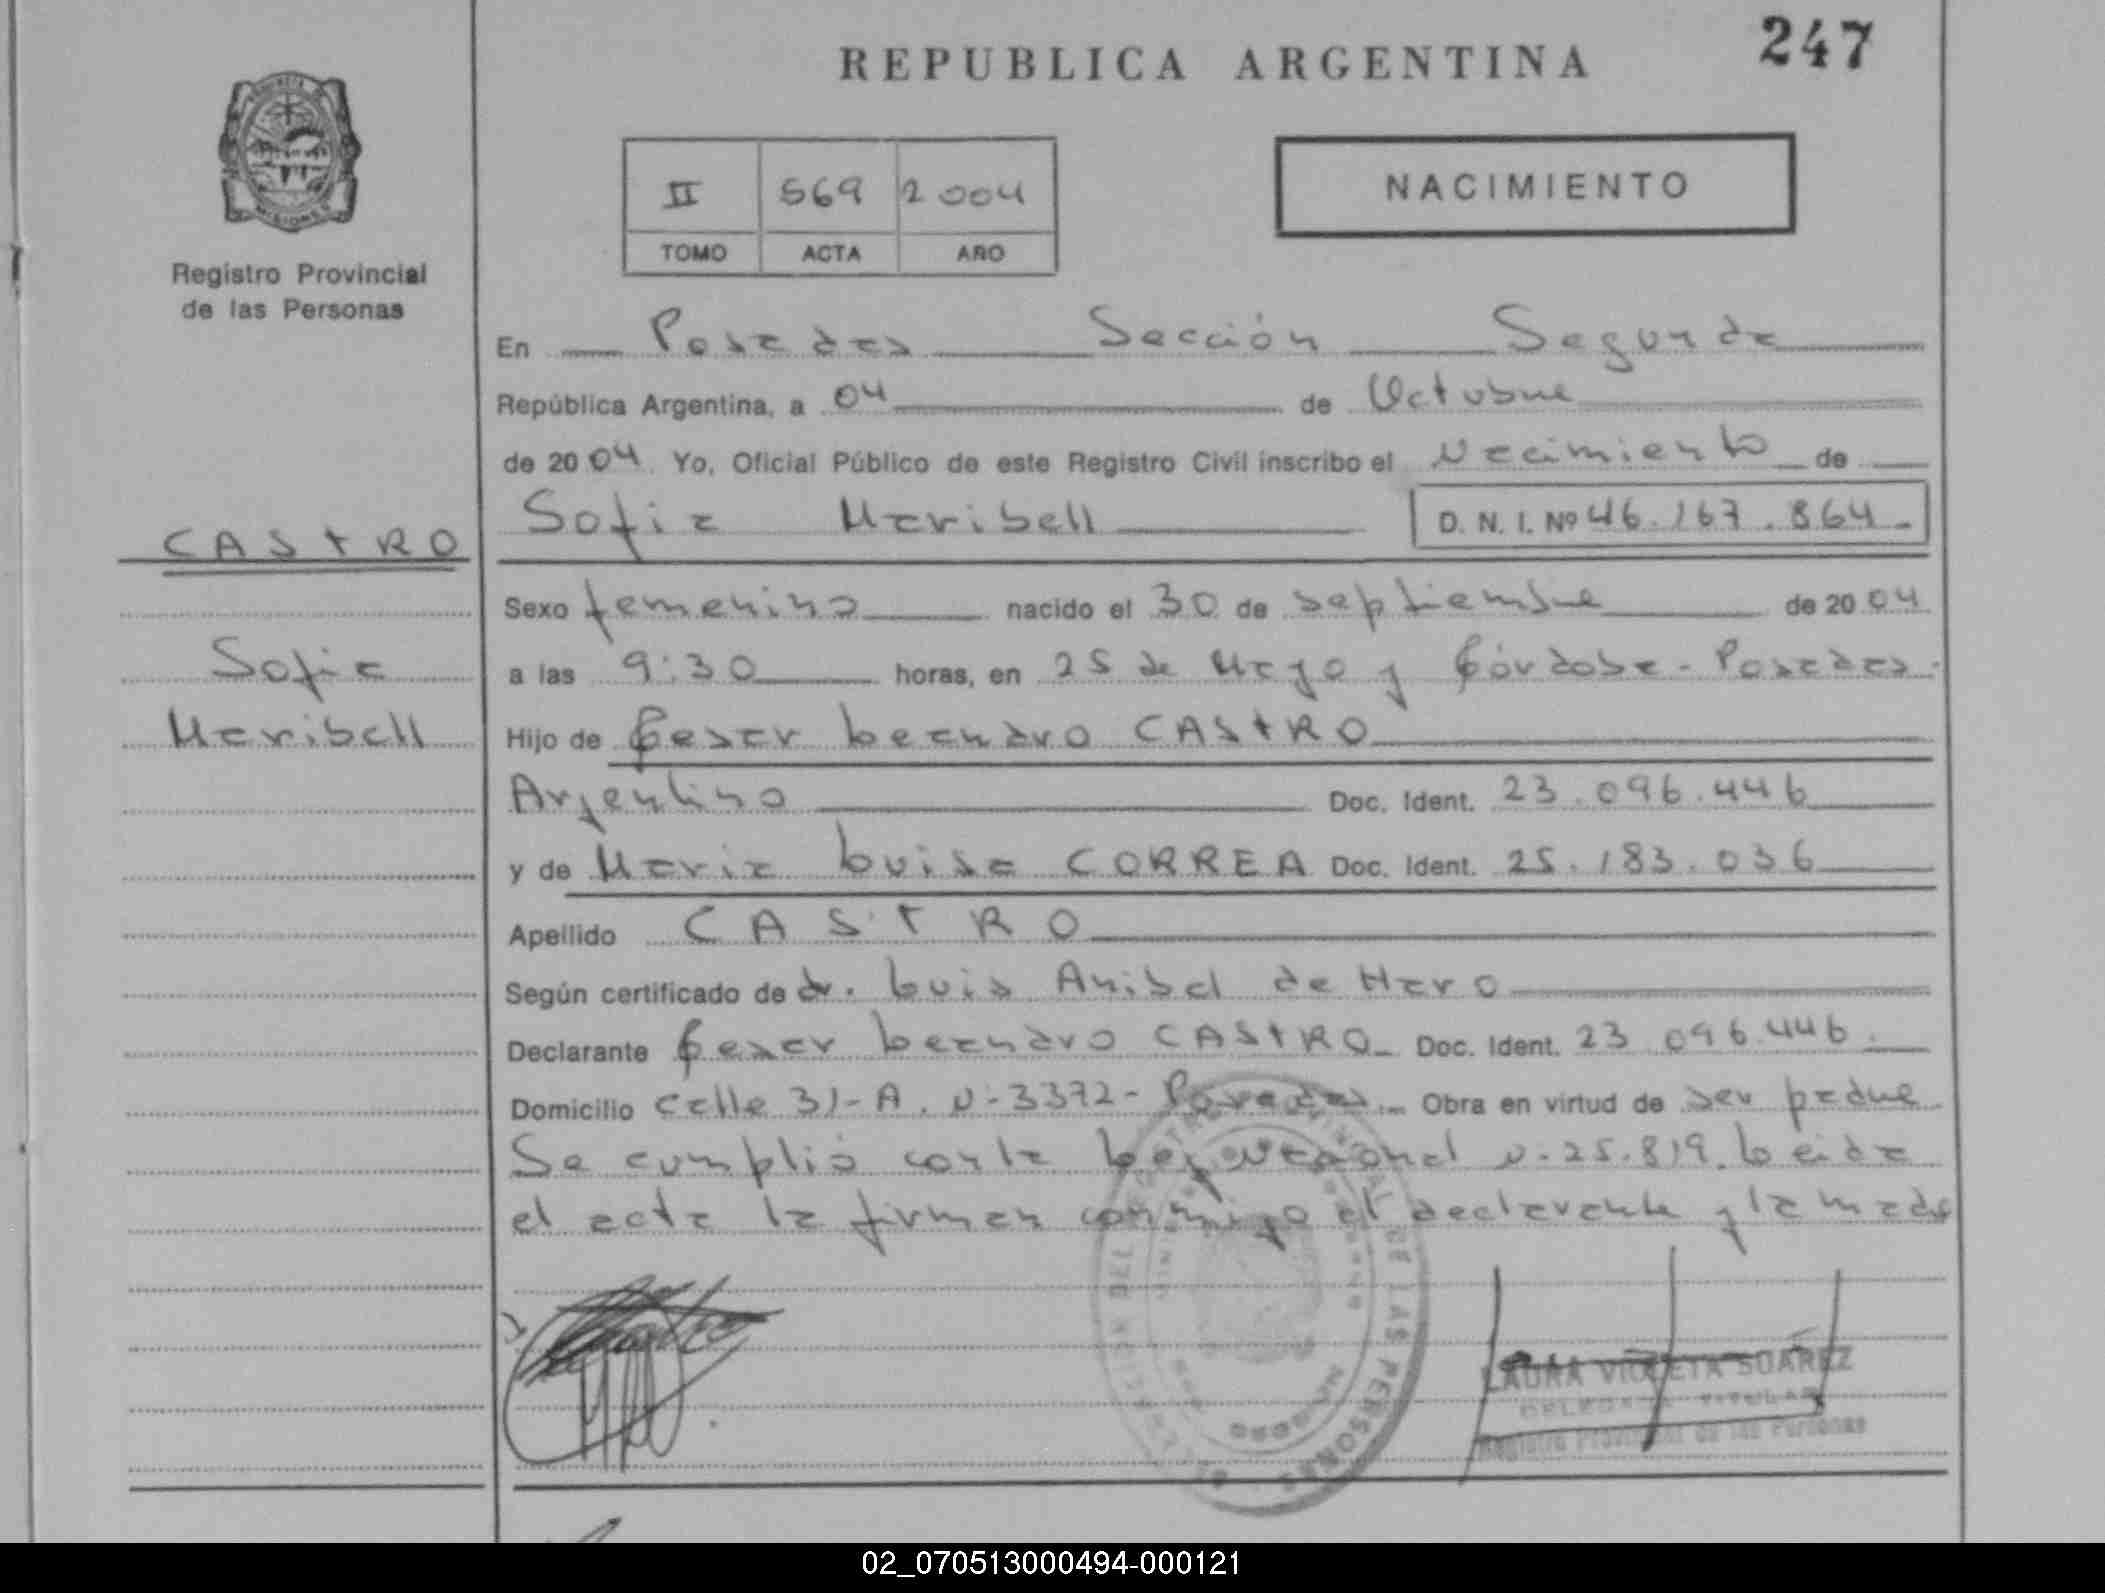 REPUBLICA ARGENTINA
247
PROVINCIA DE
MISIONES
Registro Provincial
de las Personas
II 569 2004
TOMO ACTA AÑO
NACIMIENTO
En Posadas Sección Segunda
República Argentina, a 04 de Octubre
de 2004 Yo, Oficial Público de este Registro Civil inscribo el Nacimiento de
Sofia Maribell D. N. I. Nº 46.167.864.
CASTRO
Sofia
Maribell
Sexo femenino nacido el 30 de septiembre de 2004
a las 9:30 horas, en 25 de Mayo y Córdoba - Posadas.
Hijo de Cesar Leandro CASTRO
Argentino Doc. Ident. 23.096.446
y de Maria Luisa CORREA Doc. Ident. 25.183.036
Apellido CASTRO
Según certificado de dr. Luis Anibal de Haro
Declarante Cesar Leandro CASTRO Doc. Ident. 23.096.446.
Domicilio calle 31-A. N-3372- Posadas Obra en virtud de ser padre
Se cumplió con la Ley Nacional N-25.819. Leida
el acta la firman conmigo el declarante y la madre
DEL REGISTRO PROVINCIAL DE LAS PERSONAS
LAURA VIOLETA SUAREZ
DELEGADA TITULAR
Registro Provincial de las Personas
02_070513000494-000121